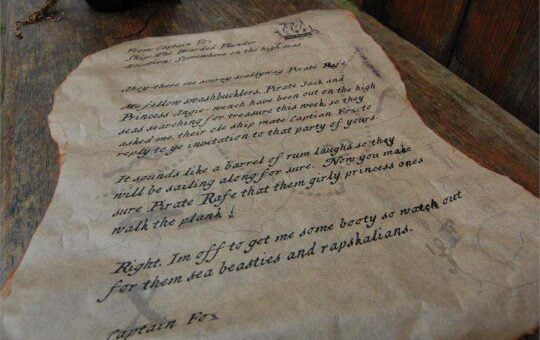 From: Captain Fox
Ship: The Bearded Plunder
Location: Somewhere on the high seas
Ahoy there me scurvy scallywag Pirate Rafe
Me fellow swashbucklers, Pirate Jack and
Princess Angie wench have been out on the high
seas searching for treasure this week so they
asked me, their ole ship mate Captian Fox, to
reply to ye invitation to that party of yours.
It sounds like a barrel of rum laughs so they
will be sailing along for sure. Now you make
sure Pirate Rafe that them girly princess ones
walk the plank!
Right. Im off to get me some booty so watch out
for them sea beasties and rapskalians.
Captain Fox